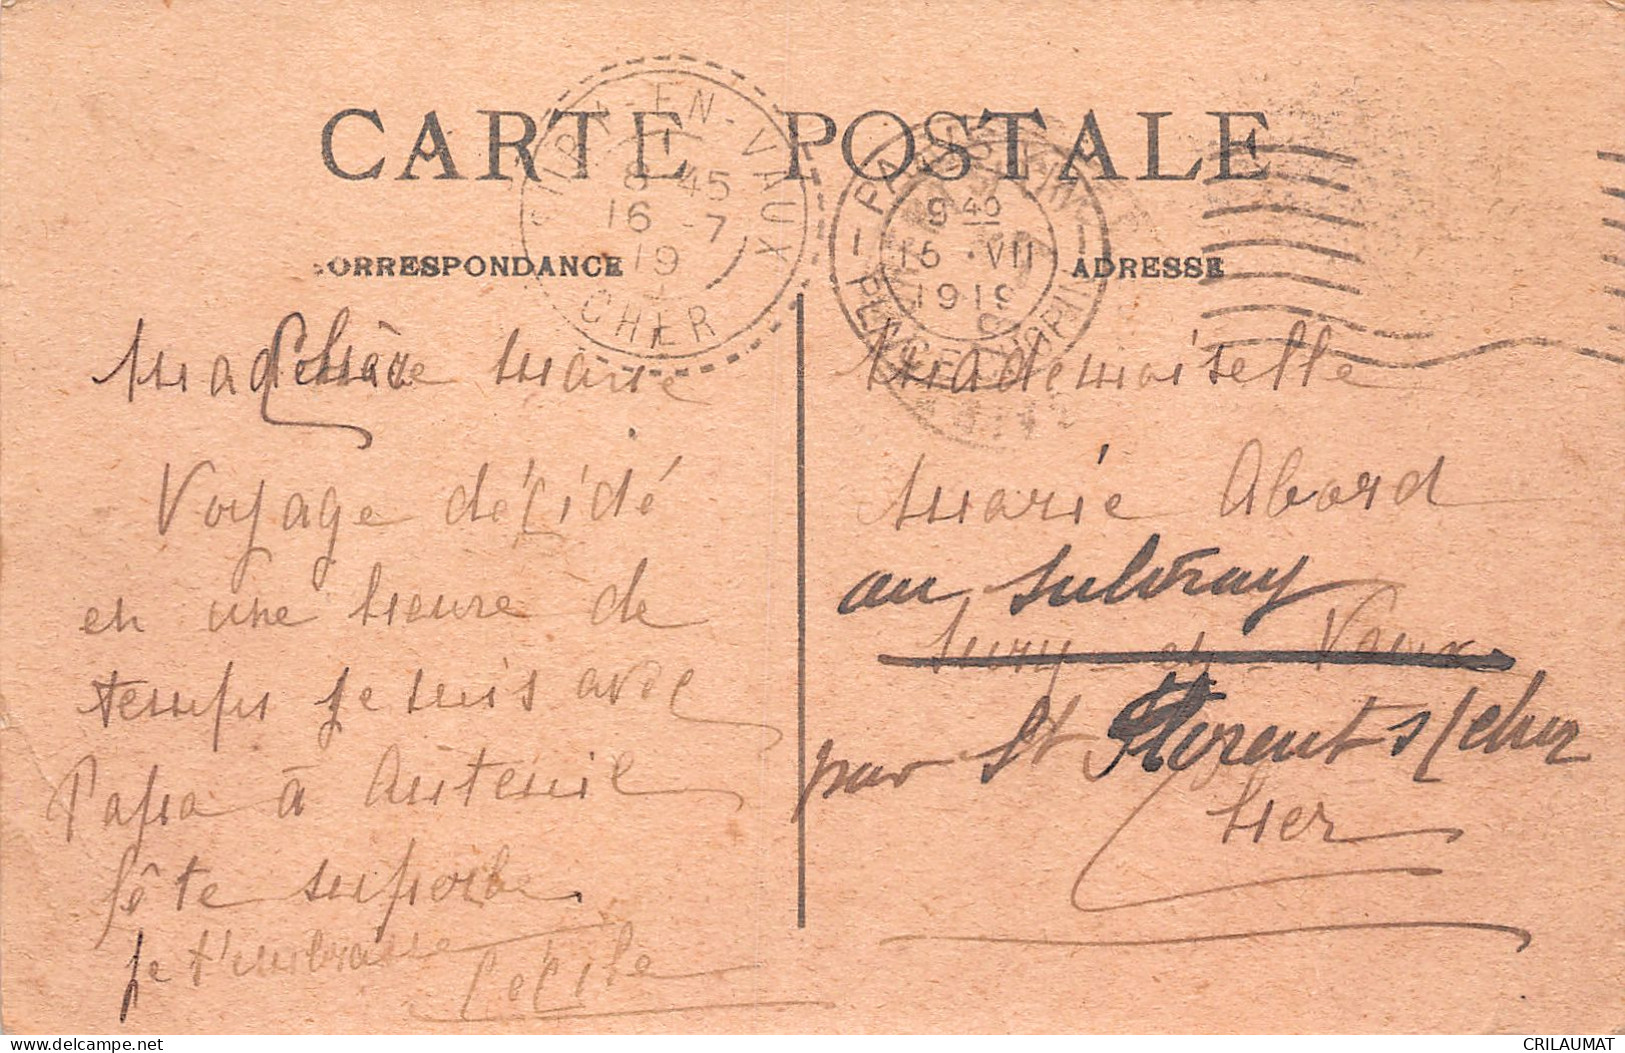 CARTE POSTALE
CORRESPONDANCE
ADRESSE
EN-VAUX
8 45
16 -7
19
CHER
PARIS
9 40
15 VII
1919
Ma Chère Marie
Voyage décidé
en une heure de
temps je suis avec
Papa à Auteuil
fête superbe
je t'embrasse
Cécile
Mademoiselle
Marie Abord
au
Sury en Vaux
par St Florent s/cher
Cher
CRILAUMAT